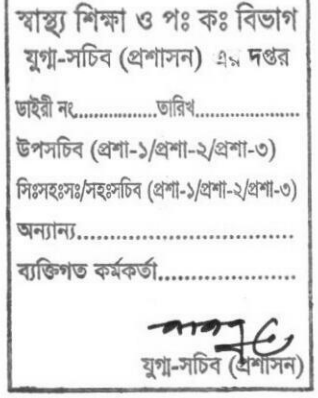 স্বাস্থ্য শিক্ষা ও পঃ কঃ বিভাগ
যুগ্ম-সচিব (প্রশাসন) এর দপ্তর
ডাইরী নং................তারিখ......................
উপসচিব (প্রশা-১/প্রশা-২/প্রশা-৩)
সিঃসহঃসঃ/সহঃসচিব (প্রশা-১/প্রশা-২/প্রশা-৩)
অন্যান্য...................................
ব্যক্তিগত কর্মকর্তা......................
যুগ্ম-সচিব (প্রশাসন)